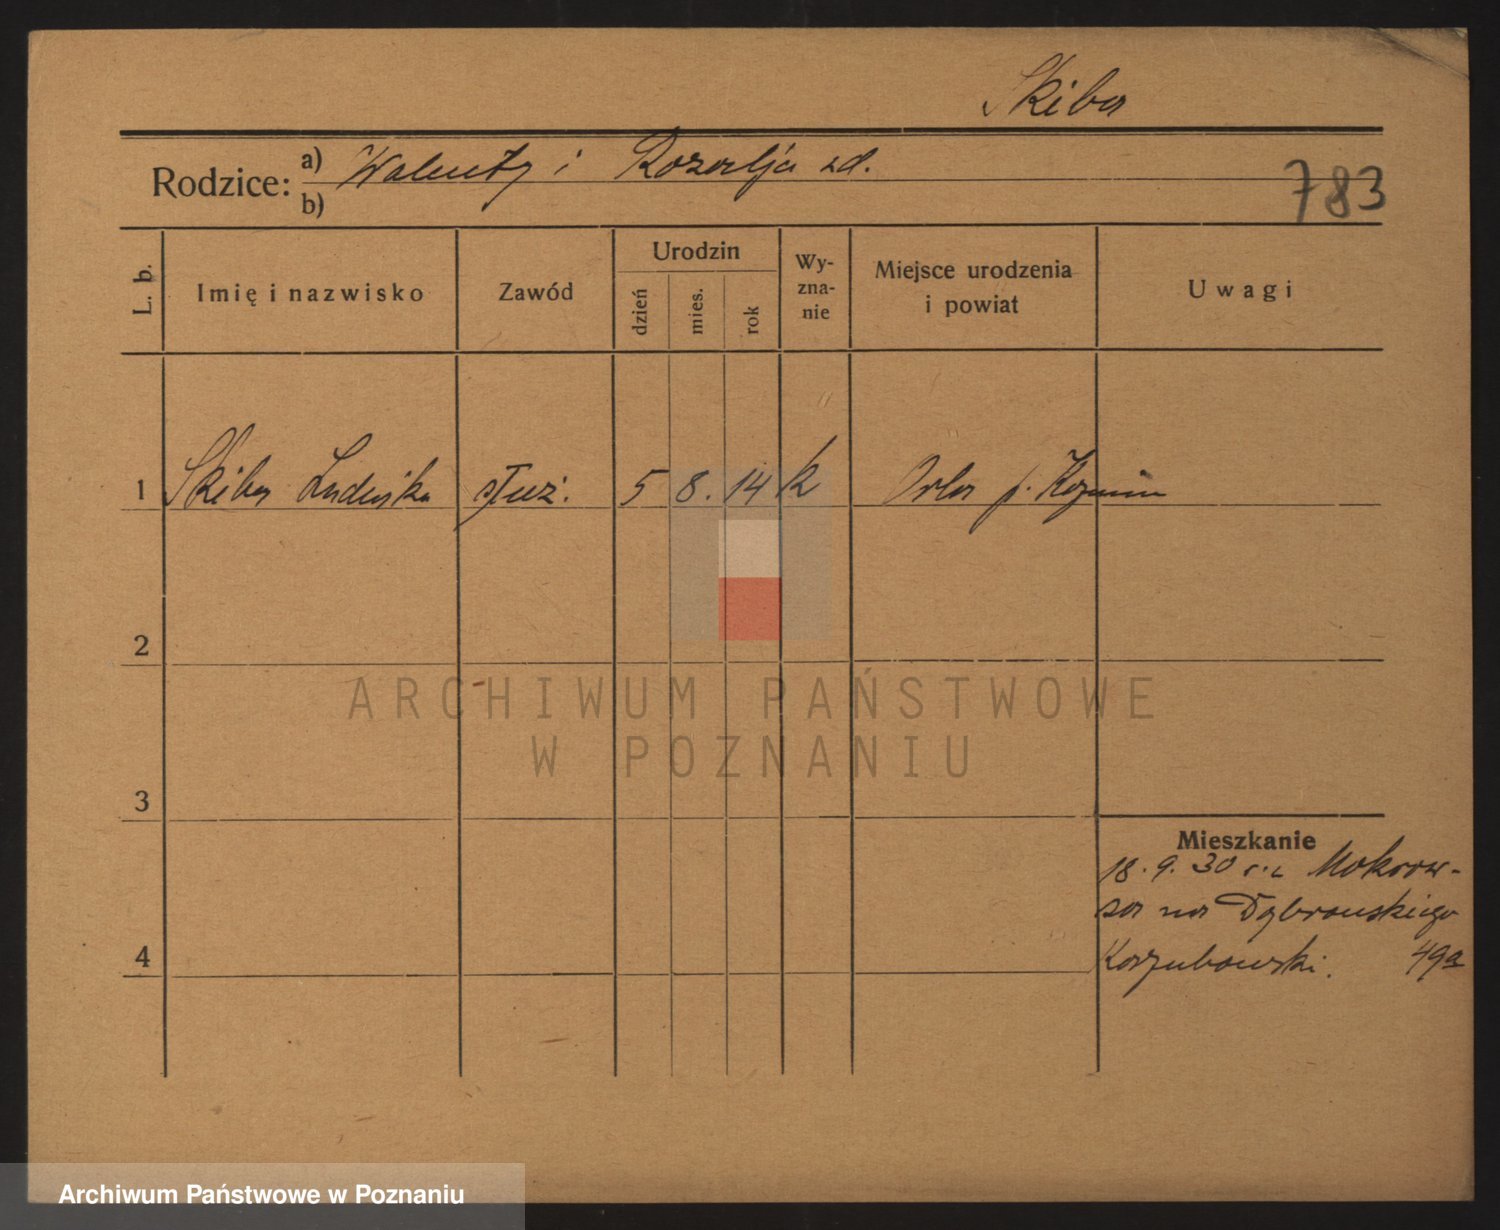 Skiba
Rodzice: a) Walenty i Rozalja zd.
b)
783
L. b. Imię i nazwisko Zawód Urodzin dzień mies. rok Wy-zna-nie Miejsce urodzenia i powiat Uwagi
1 Skiba Ludwika służ. 5 8. 14 k Orla p. Koźmin
2
ARCHIWUM PAŃSTWOWE
W POZNANIU
3
Mieszkanie
18. 9. 30 r. z Mokrow-
sa na Dąbrowskiego
4
Korzubowski. 49a
Archiwum Państwowe w Poznaniu